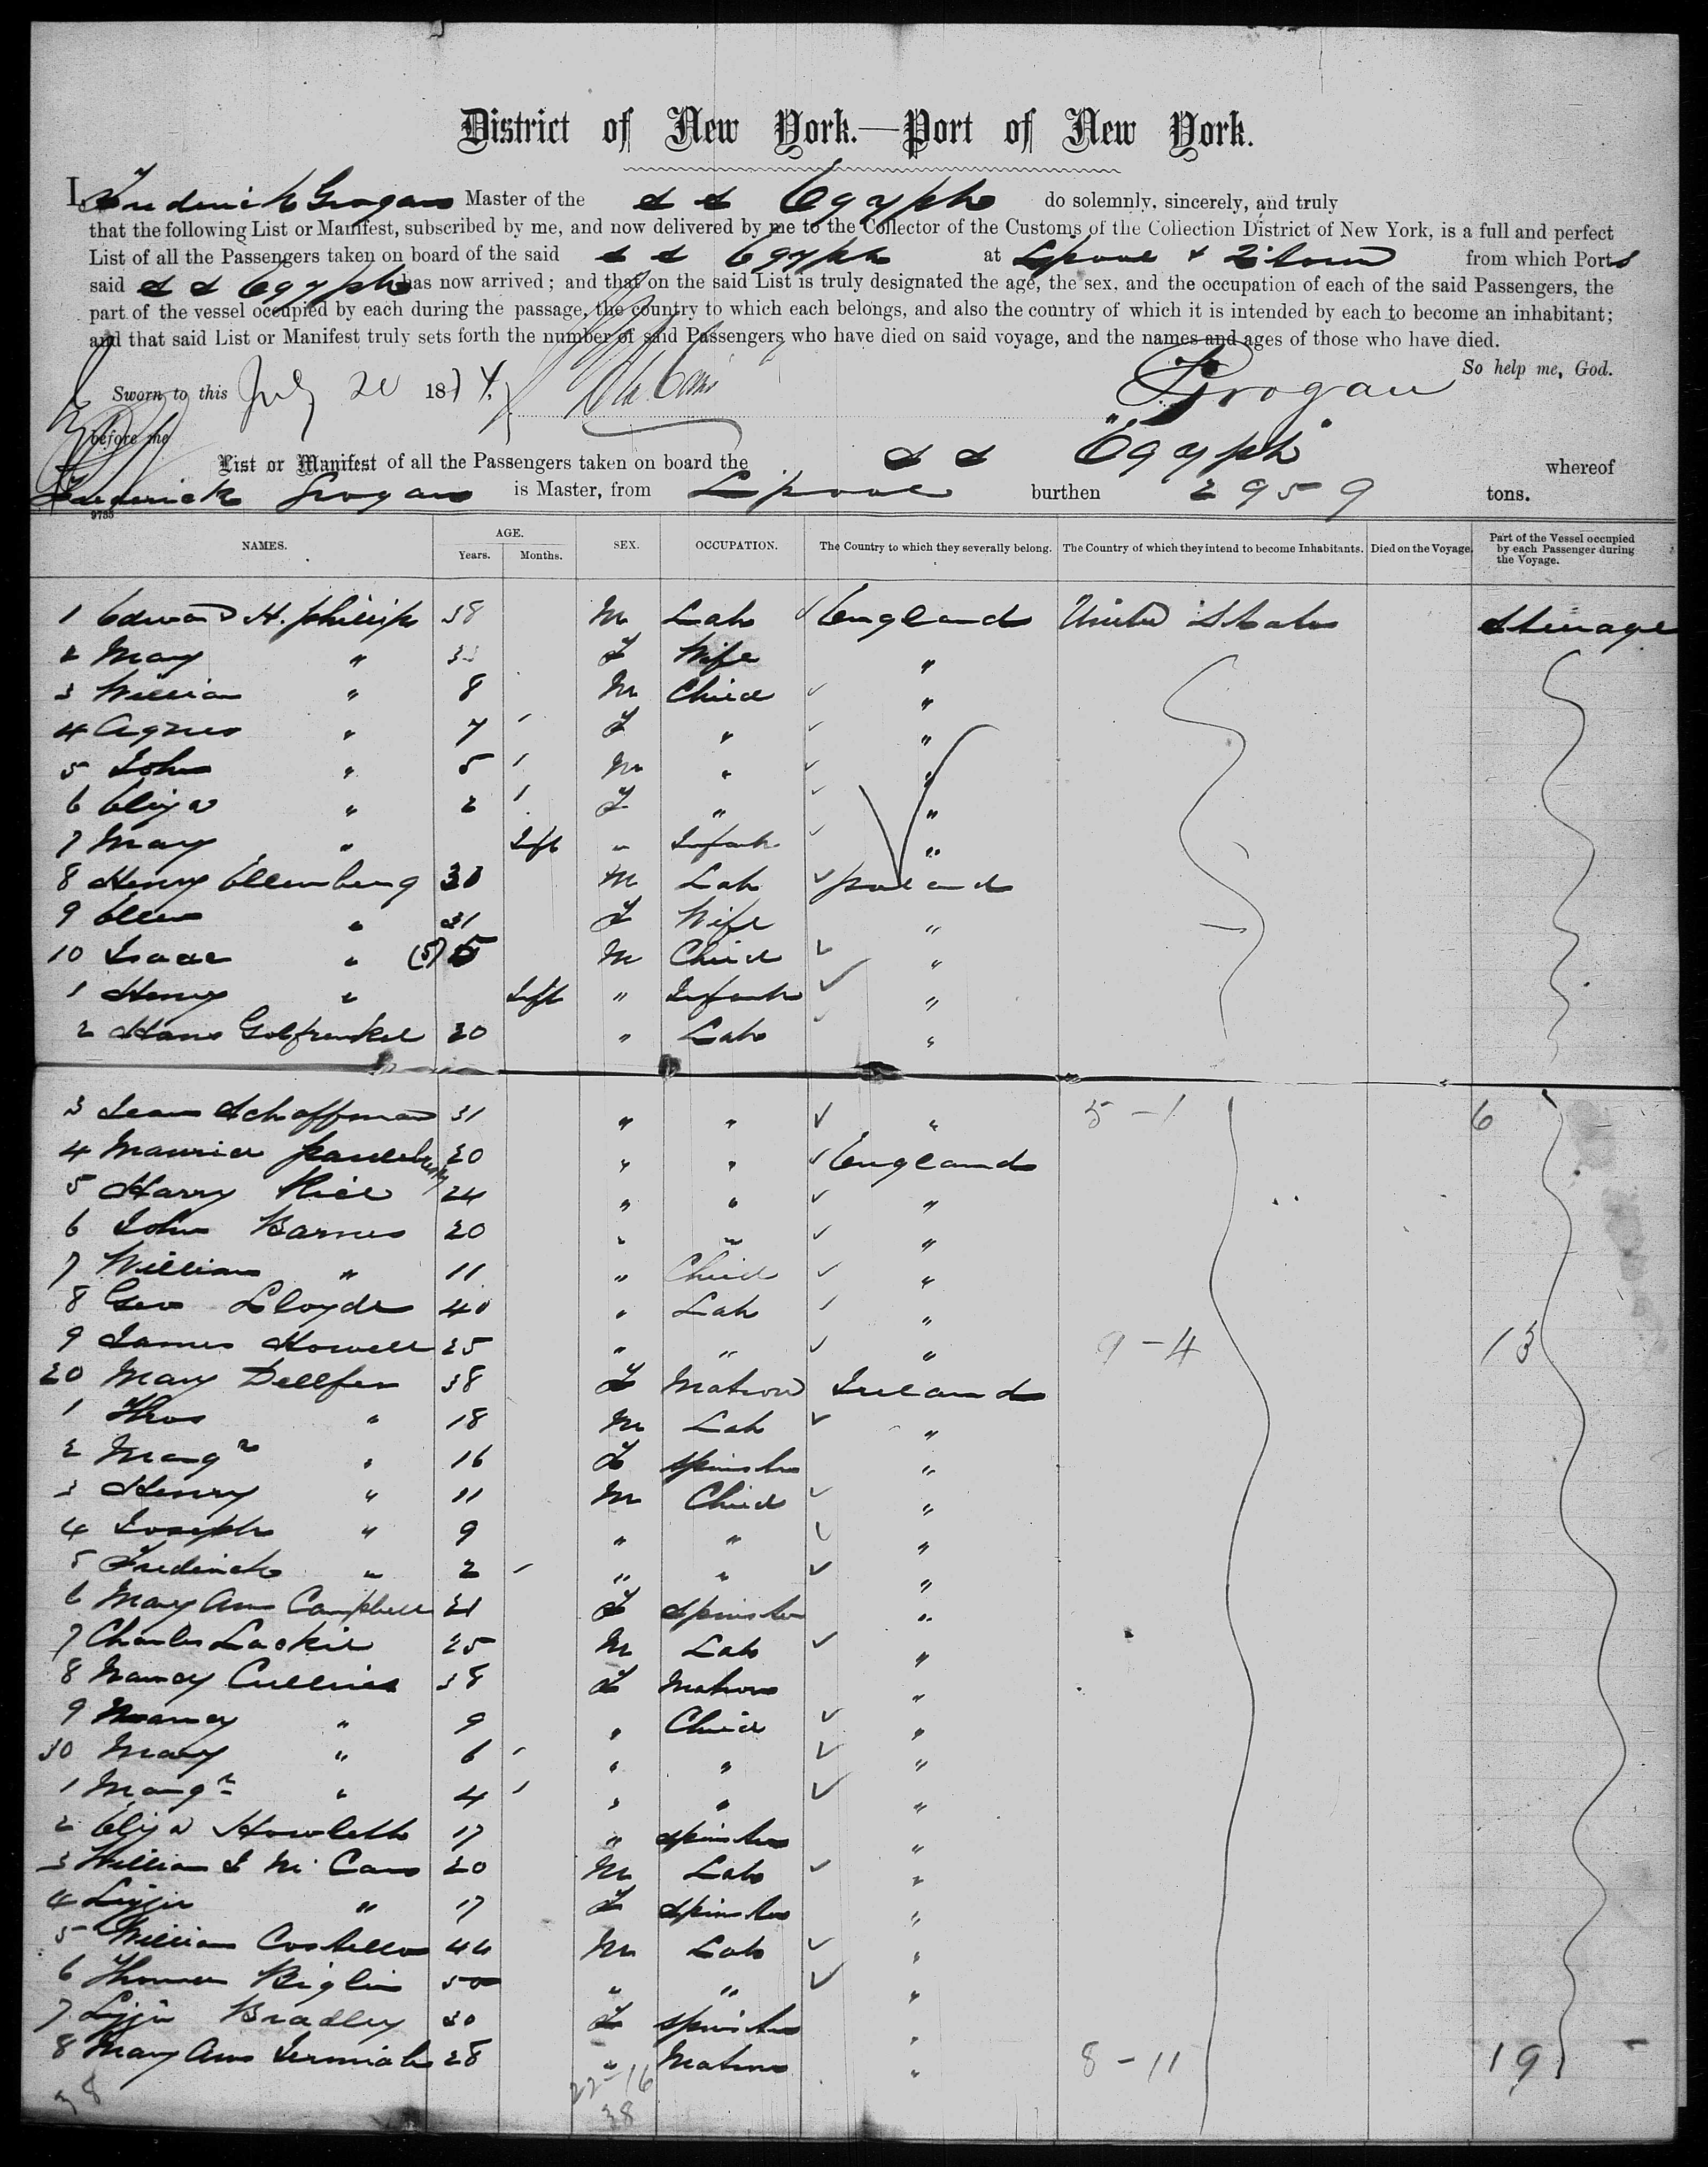 District of New York.—Port of New York.
I, Frederick Grogan Master of the S S Egypt do solemnly, sincerely, and truly
that the following List or Manifest, subscribed by me, and now delivered by me to the Collector of the Customs of the Collection District of New York, is a full and perfect
List of all the Passengers taken on board of the said S S Egypt at Lpool & from which Ports
said S S Egypt has now arrived; and that on the said List is truly designated the age, the sex, and the occupation of each of the said Passengers, the
part of the vessel occupied by each during the passage, the country to which each belongs, and also the country of which it is intended by each to become an inhabitant;
and that said List or Manifest truly sets forth the number of said Passengers who have died on said voyage, and the names and ages of those who have died.
So help me, God.
Sworn to this July 20 1874. Grogan
before me
List or Manifest of all the Passengers taken on board the S S "Egypt" whereof
Frederick Grogan is Master, from Lpool burthen 2959 tons.
9755
NAMES. AGE. Years. Months. SEX. OCCUPATION. The Country to which they severally belong. The Country of which they intend to become Inhabitants. Died on the Voyage. Part of the Vessel occupied by each Passenger during the Voyage.
1 Edward H. Phillips 38 M Lab England United States Steerage
2 Mary " F Wife "
3 William " 8 M Child "
4 Agnes " 7 F " "
5 John " 5 M " "
6 Eliza " 2 F " "
7 Mary " Inft " Infant "
8 Henry Ellenberg 30 M Lab Poland
9 Ellen " 31 F Wife "
10 Isaac " (5) 5 M Child "
1 Henry " Inft " Infant "
2 Hans Golfrenkel 20 " Lab "
3 Schoffman 31 " " " 5-1 6
4 Maurice 20 " " England
5 Harry 24 " " "
6 John Barnes 20 " " "
7 William " 11 " Child "
8 Geo Lloyde 40 " Lab "
9 James Howell 25 " " " 9-4 13
20 Mary Dellfer 38 F Matron Ireland
1 Thos " 18 M Lab "
2 Margt " 16 F Spinster "
3 Henry " 11 M Child "
4 Joseph " 9 " " "
5 Frederick " 2 " " "
6 Mary Ann Campbell 21 F Spinster "
7 Charles Lackie 25 M Lab "
8 Nancy Cullins 38 F Matron "
9 Nancy " 9 " Child "
30 Mary " 6 " " "
1 Margt " 4 " " "
2 Eliza Howlett 17 " Spinster "
3 William J McCann 20 M Lab "
4 Lizzie " 17 F Spinster "
5 William Costello 44 M Lab "
6 Thomas Biglin 50 " " "
7 Lizzie Bradley 30 F Spinster "
8 Mary Ann Jermiah 28 " Matron " 8-11 19
38 22-16
38